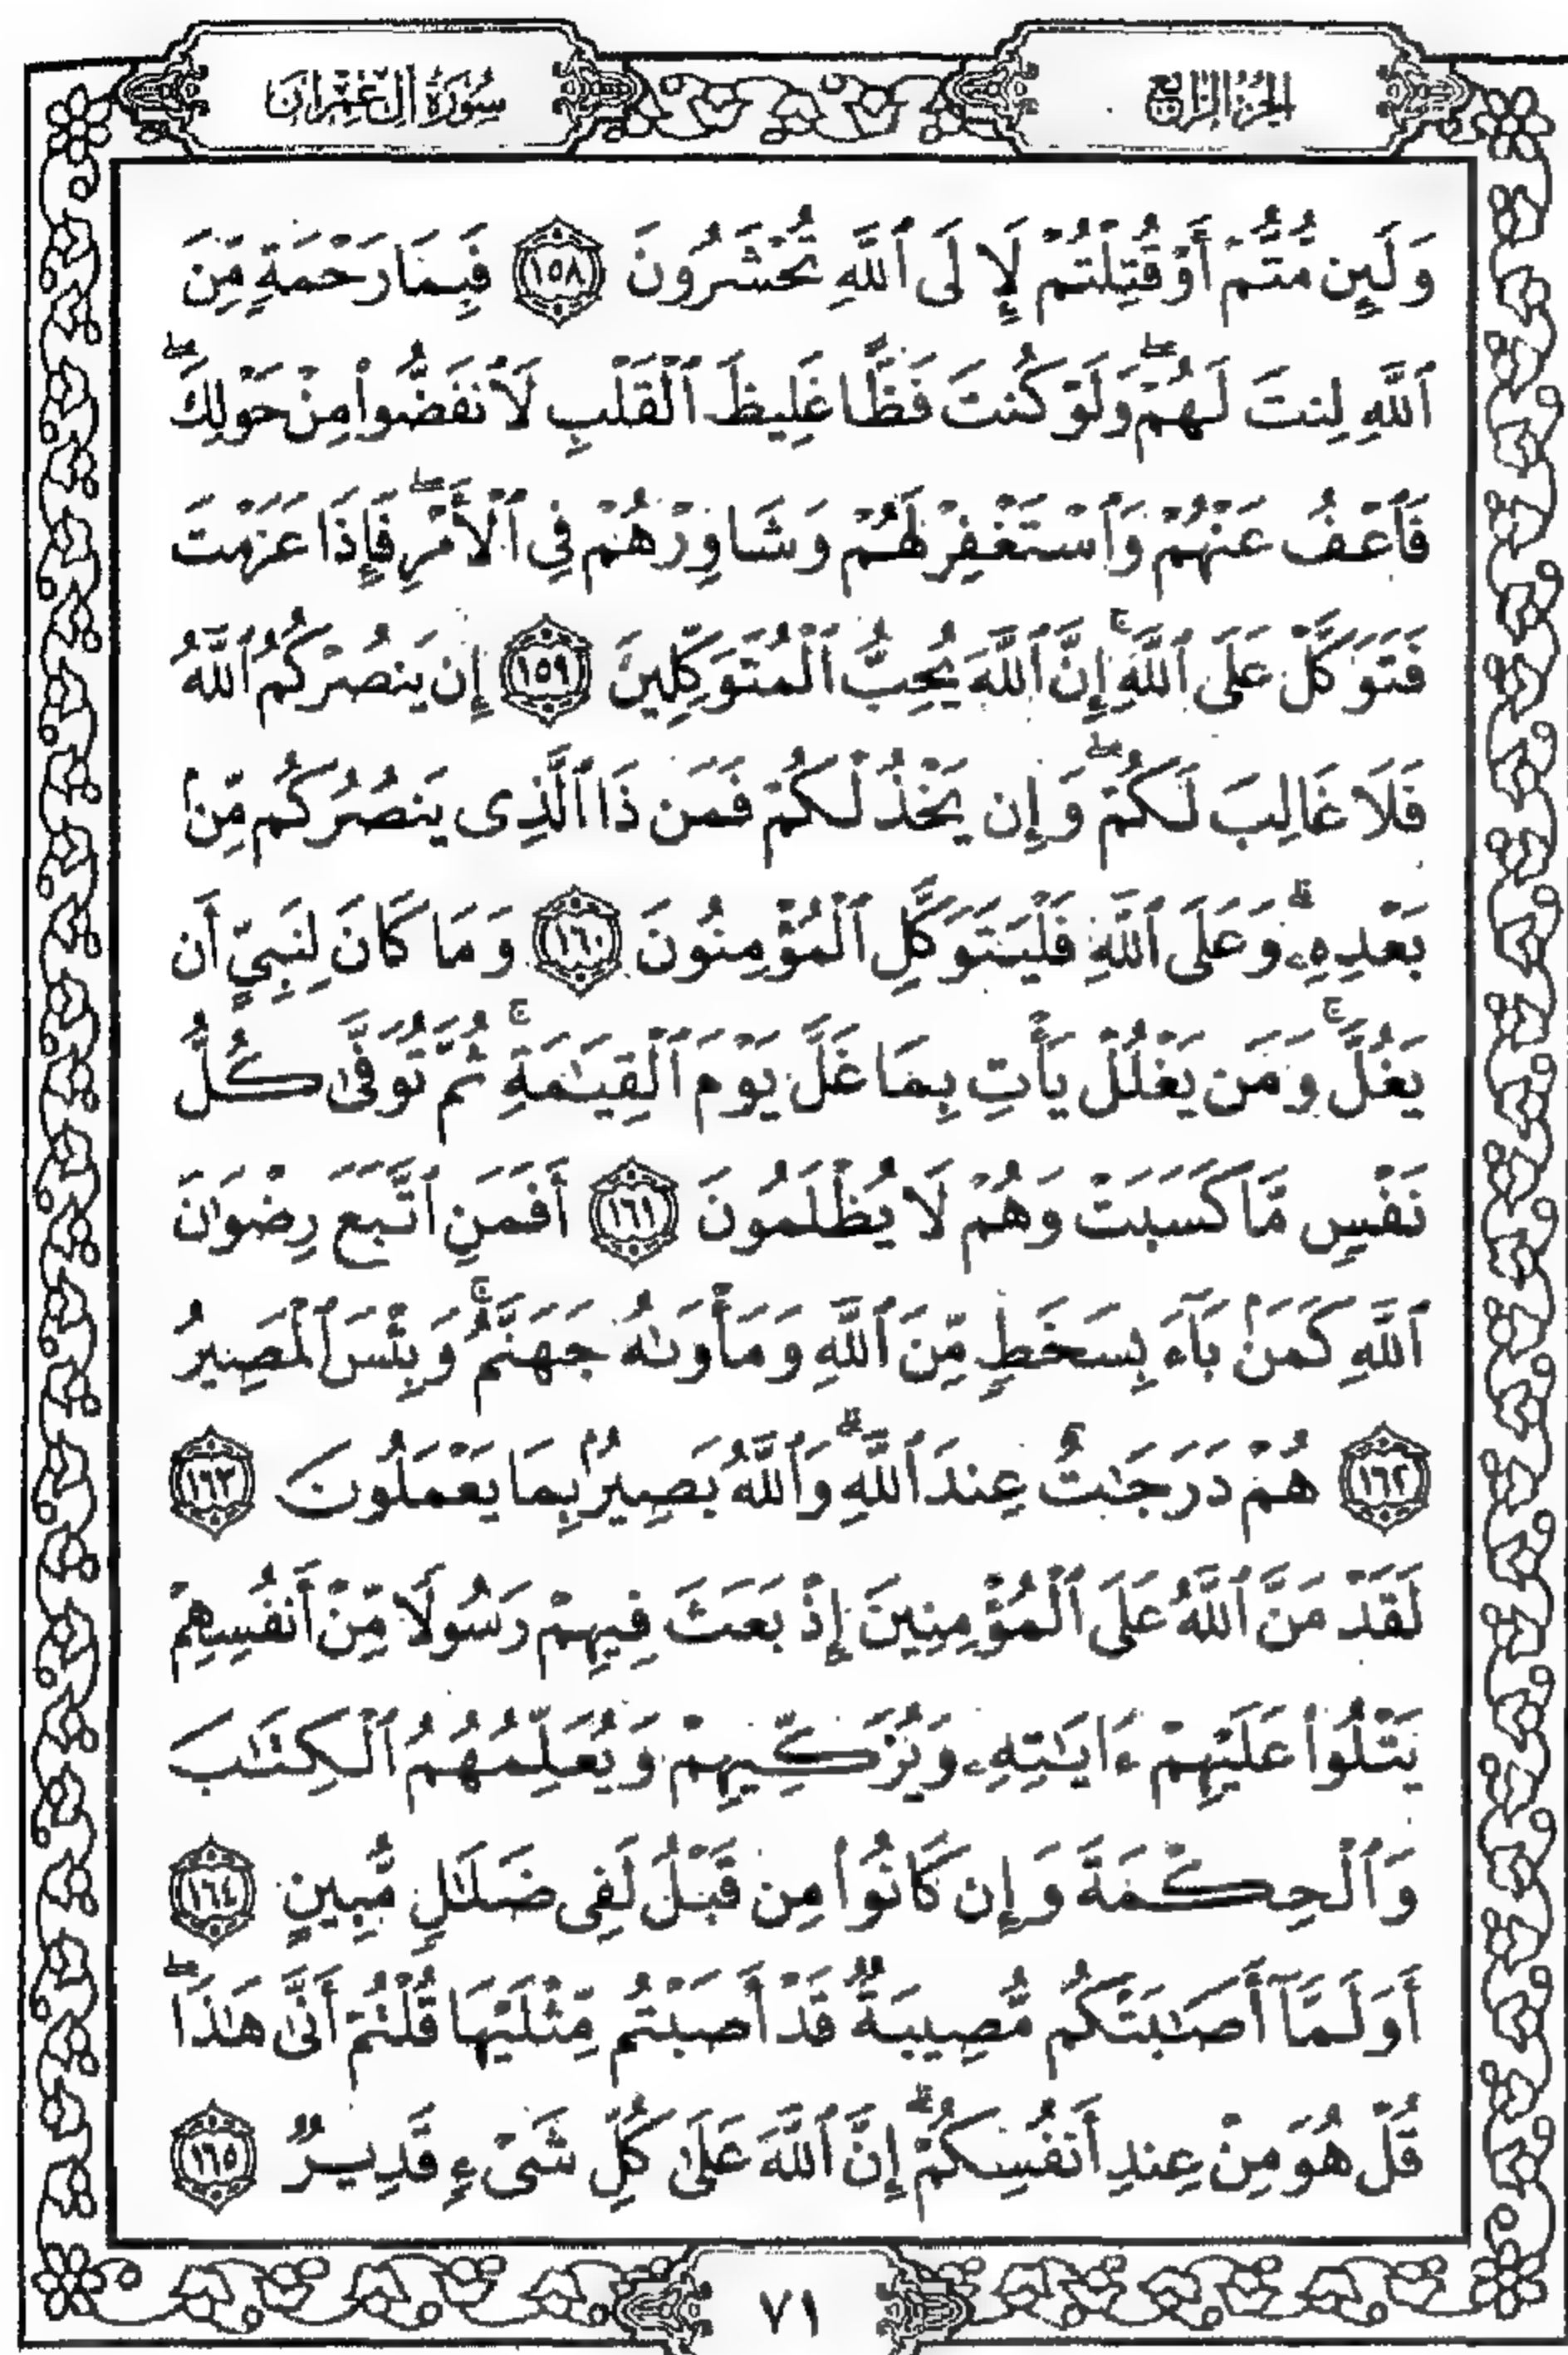 الجزء الرابع
سورة آل عمران
وَلَئِن مُّتُّمْ أَوْ قُتِلْتُمْ لَإِلَى ٱللَّهِ تُحْشَرُونَ ﴿١٥٨﴾ فَبِمَا رَحْمَةٍ مِّنَ
ٱللَّهِ لِنتَ لَهُمْ ۖ وَلَوْ كُنتَ فَظًّا غَلِيظَ ٱلْقَلْبِ لَٱنفَضُّوا۟ مِنْ حَوْلِكَ ۖ
فَٱعْفُ عَنْهُمْ وَٱسْتَغْفِرْ لَهُمْ وَشَاوِرْهُمْ فِى ٱلْأَمْرِ ۖ فَإِذَا عَزَمْتَ
فَتَوَكَّلْ عَلَى ٱللَّهِ ۚ إِنَّ ٱللَّهَ يُحِبُّ ٱلْمُتَوَكِّلِينَ ﴿١٥٩﴾ إِن يَنصُرْكُمُ ٱللَّهُ
فَلَا غَالِبَ لَكُمْ ۖ وَإِن يَخْذُلْكُمْ فَمَن ذَا ٱلَّذِى يَنصُرُكُم مِّنۢ
بَعْدِهِۦ ۗ وَعَلَى ٱللَّهِ فَلْيَتَوَكَّلِ ٱلْمُؤْمِنُونَ ﴿١٦٠﴾ وَمَا كَانَ لِنَبِىٍّ أَن
يَغُلَّ ۚ وَمَن يَغْلُلْ يَأْتِ بِمَا غَلَّ يَوْمَ ٱلْقِيَـٰمَةِ ۚ ثُمَّ تُوَفَّىٰ كُلُّ
نَفْسٍ مَّا كَسَبَتْ وَهُمْ لَا يُظْلَمُونَ ﴿١٦١﴾ أَفَمَنِ ٱتَّبَعَ رِضْوَٰنَ
ٱللَّهِ كَمَنۢ بَآءَ بِسَخَطٍ مِّنَ ٱللَّهِ وَمَأْوَىٰهُ جَهَنَّمُ ۚ وَبِئْسَ ٱلْمَصِيرُ
﴿١٦٢﴾ هُمْ دَرَجَـٰتٌ عِندَ ٱللَّهِ ۗ وَٱللَّهُ بَصِيرٌۢ بِمَا يَعْمَلُونَ ﴿١٦٣﴾
لَقَدْ مَنَّ ٱللَّهُ عَلَى ٱلْمُؤْمِنِينَ إِذْ بَعَثَ فِيهِمْ رَسُولًا مِّنْ أَنفُسِهِمْ
يَتْلُوا۟ عَلَيْهِمْ ءَايَـٰتِهِۦ وَيُزَكِّيهِمْ وَيُعَلِّمُهُمُ ٱلْكِتَـٰبَ
وَٱلْحِكْمَةَ وَإِن كَانُوا۟ مِن قَبْلُ لَفِى ضَلَـٰلٍ مُّبِينٍ ﴿١٦٤﴾
أَوَلَمَّآ أَصَـٰبَتْكُم مُّصِيبَةٌ قَدْ أَصَبْتُم مِّثْلَيْهَا قُلْتُمْ أَنَّىٰ هَـٰذَا ۖ
قُلْ هُوَ مِنْ عِندِ أَنفُسِكُمْ ۗ إِنَّ ٱللَّهَ عَلَىٰ كُلِّ شَىْءٍ قَدِيرٌ ﴿١٦٥﴾
٧١